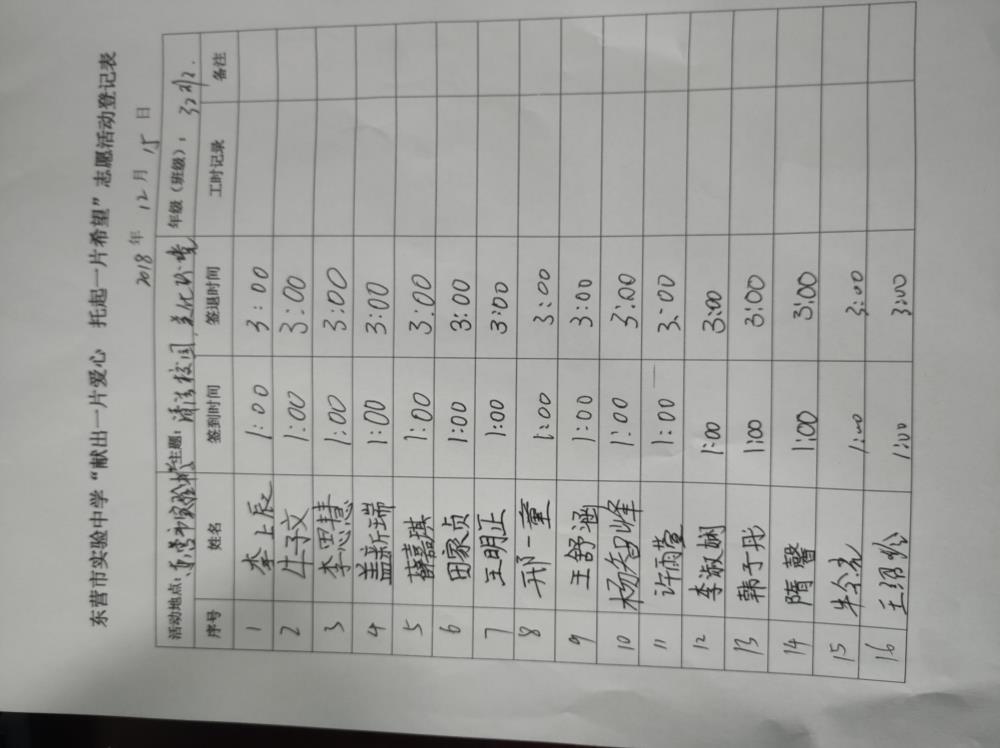 东营市实验中学“献出一片爱心 托起一片希望”志愿活动登记表
2018年 12月 15日
活动地点：东营市实验中学 主题：清洁校园，美化环境 年级（班级）：
序号 姓名 签到时间 签退时间 工时记录 备注
1 李上辰 1:00 3:00
2 牛子文 1:00 3:00
3 李思慧 1:00 3:00
4 盖新瑞 1:00 3:00
5 薛嘉琪 1:00 3:00
6 田家贞 1:00 3:00
7 王明正 1:00 3:00
8 邢一童 1:00 3:00
9 王舒涵 1:00 3:00
10 杨智峰 1:00 3:00
11 许雨萱 1:00 3:00
12 李淑娴 1:00 3:00
13 韩于彤 1:00 3:00
14 隋馨 1:00 3:00
15 1:00 3:00
16 1:00 3:00